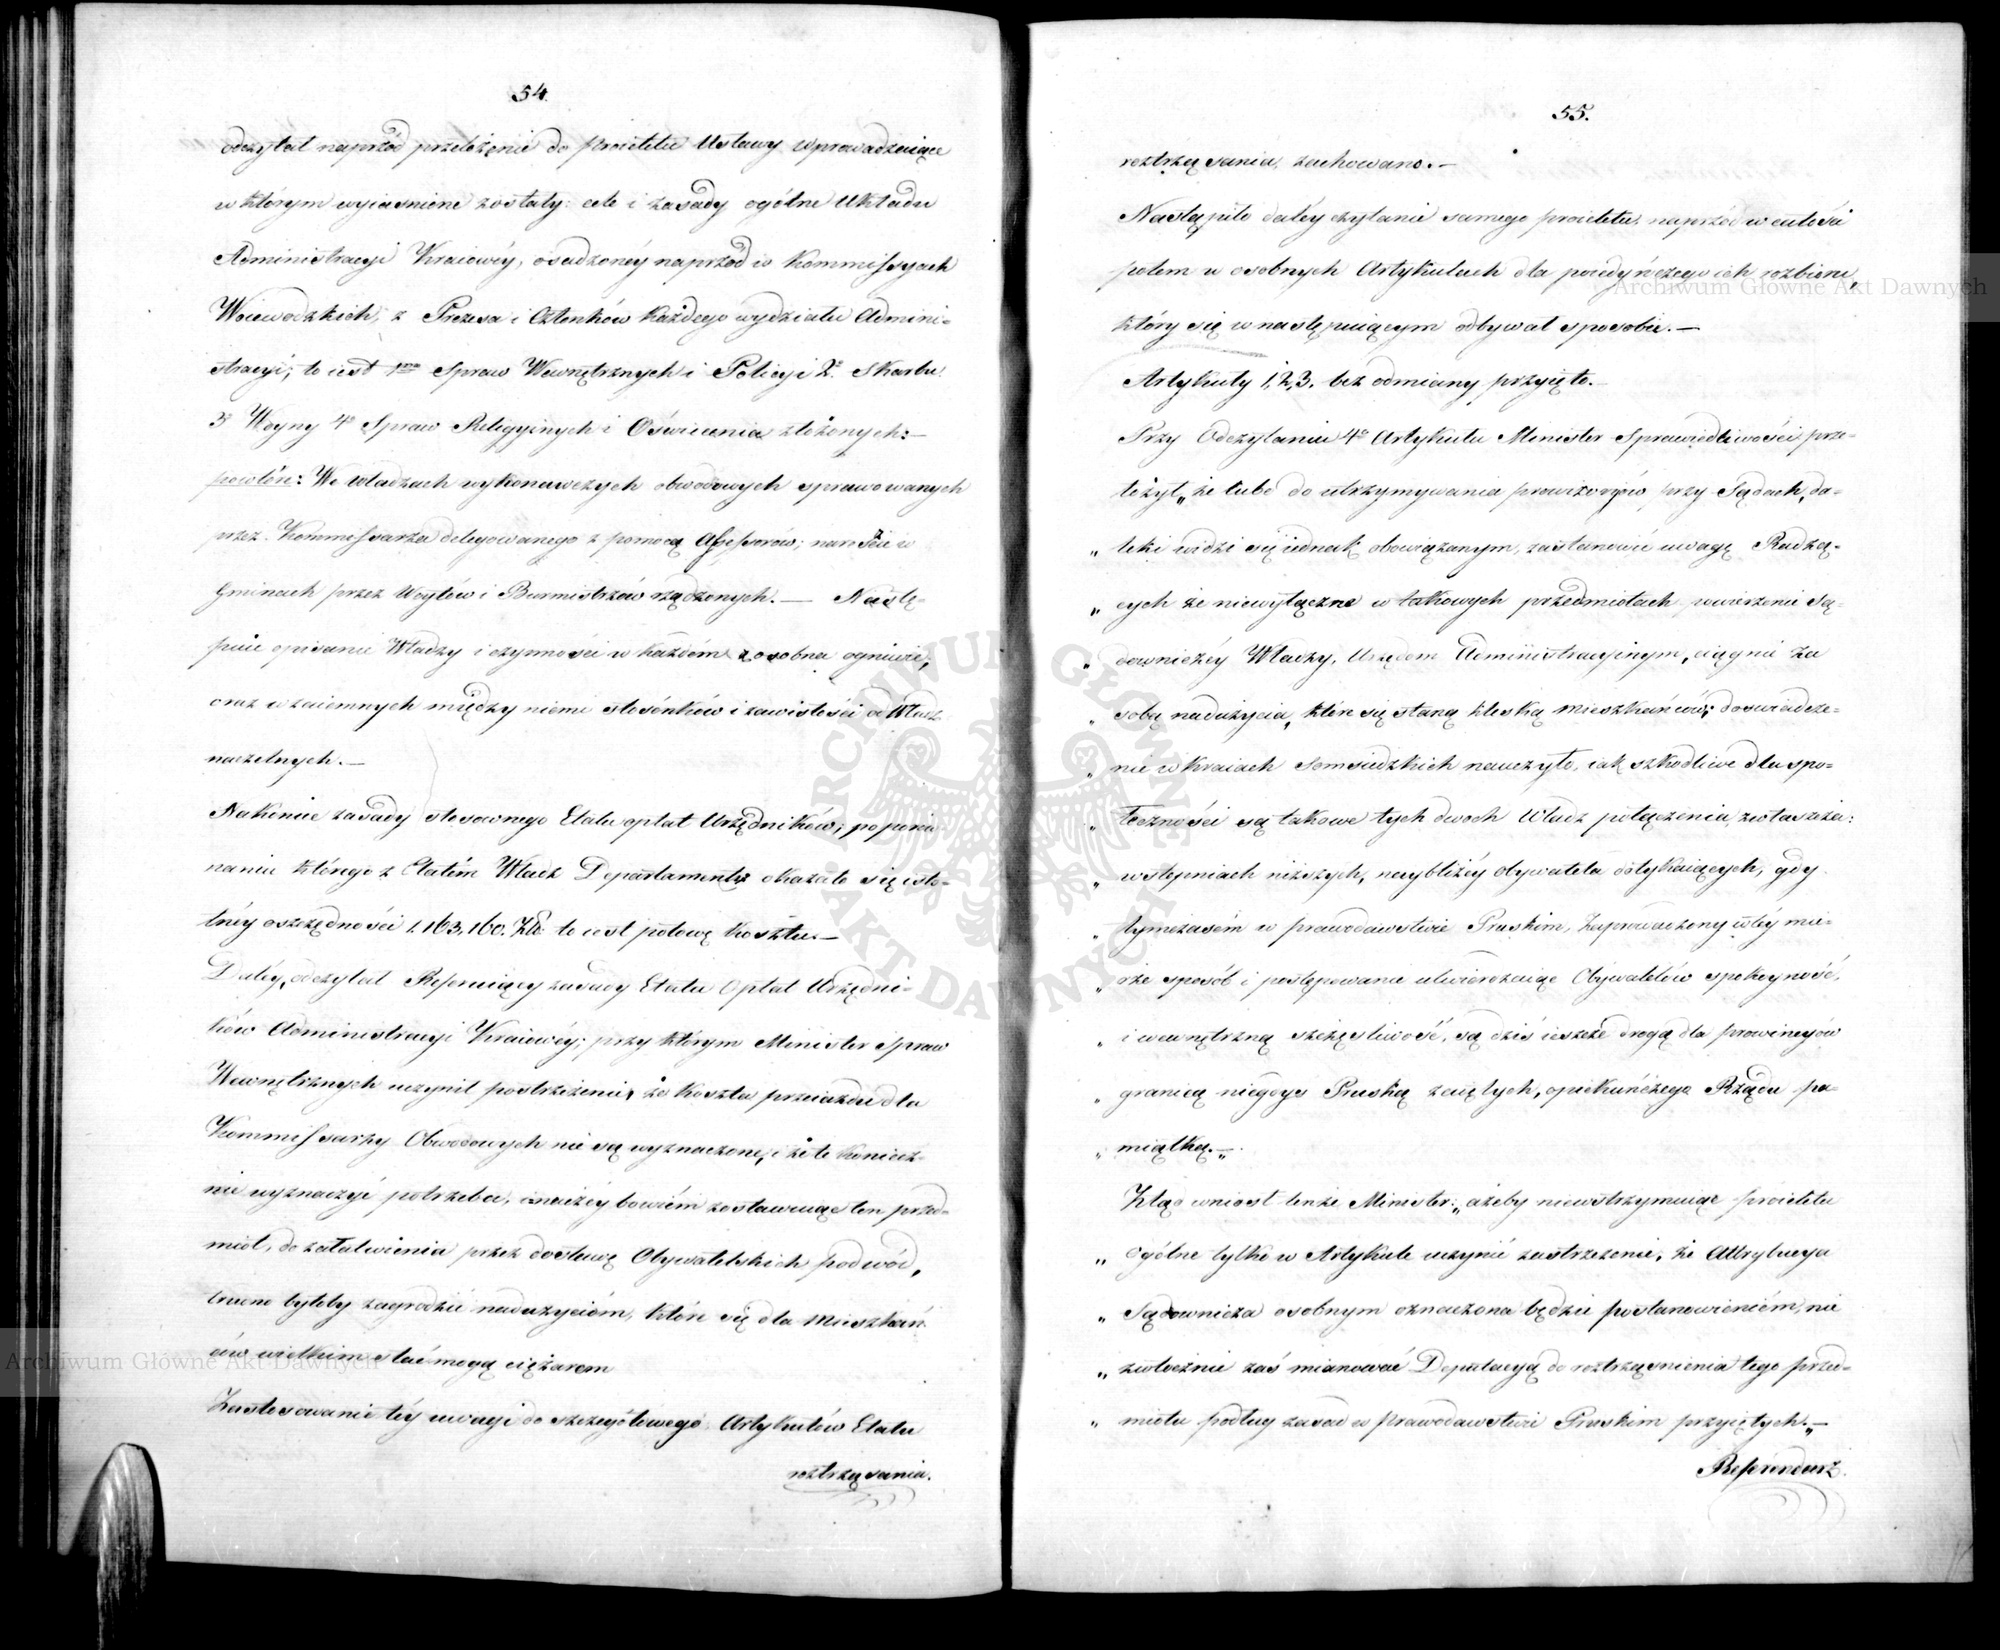 54.
odczytał naprzód przełożenie do proiektu Ustawy wprowadzaiące
w którym wyiaśnione zostały: cele i zasady ogólne Układu
Administracyi Kraiowéy, osadzonéy naprzód w Kommissyach
Woiewodzkich, z Prezesa i Członków każdego wydziału Admini-
stracyi; to iest 1mo Spraw Wewnętrznych i Policyi 2o Skarbu
3o Woyny 4o Spraw Religyinych i Oświecenia złożonych:—
powtóre: We władzach wykonawczych obwodowych sprawowanych
przez Kommissarza delegowanego z pomocą Assessorów; nareście w
Gminach przez Woytów i Burmistrzów rządzonych.— Nastę-
puie opisanie Władzy i czynności w każdém z osobna ogniwie,
oraz wzaiemnych między niemi stosónków i zawisłości od Władz
naczelnych.—
Nakoniec zasady stosownego Etatu opłat Urzędników; po porów
naniu którego z Etatém Władz Departamentu okazało się isto-
tnéy oszczędności 1.163,160. Złt. to iest połowę kosztu.—
Daléy, odczytał Referuiący zasady Etatu Opłat Urzędni-
ków Administracyi Kraiowéy; przy którym Minister Spraw
Wewnętrznych uczynił postrzeżenie, że koszta przeiazdu dla
Kommissarzy Obwodowych nie są wyznaczone, i że te koniecz-
nie wyznaczyć potrzeba, inaczéy bowiém zostawuiąc ten przed-
miot, do załatwienia przez dostawę Obywatelskich podwód,
trudno byłoby zagrodzić nadużycióm, które się dla Mieszkań
ców wielkim stać mogą ciężarem
Zastosowanie téy uwagi do szczegółowego Artykułów Etatu
roztrząsania.
55.
roztrząsania, zachowano.—
Nastąpiło daléy czytanie samego proiektu, naprzód w całości
potem w osobnych Artykułach dla poiedyńczego ich rozbioru,
który się w następuiącym odbywał sposobie.—
Artykuły 1, 2, 3. bez odmiany przyięto.—
Przy Odczytaniu 4o Artykułu Minister Sprawiedliwości prze-
łożył „że lubo do utrzymywania prowizoryów przy Sądach, da-
„ leki widzi się iednak obowiązanym, zastanowić uwagę Radzą-
„ cych że niewyłączne w takowych przedmiotach powierzenie Są-
„ downiczéy Władzy, Urzędom Administracyinym, ciągnie za
„ sobą nadużycia, które się staną klęską mieszkańców; doswiadcze-
„ nie w Kraiach Somsiedzkich nauczyło, iak szkodliwe dla spo-
„ łeczności są takowe tych dwoch Władz połączenia, zwłaszcza:
„ w stopniach niższych, naybliżéy obywatela dotykaiących, gdy
„ tymczasém w prawodawstwie Pruskim, zaprowadzony w téy mie-
„ rze sposób i postępowanie utwierdzaiąc Obywatelów spokoyność,
„ i wewnętrzną szczęśliwość, są dziś ieszcze drogą dla prowincyów
„ granicą niegdyś Pruską zaiętych, opiekuńczego Rządu pa-
„ miątką.—„
Ztąd wniosł tenże Minister: „ażeby niewstrzymuiąc proiektu
„ Ogólne tylko w Artykule uczynić zastrzeżenie, że Attrybucya
„ Sądownicza osobnym oznaczona będzie postanowieniém, nie
„ zwłocznie zaś mianować Deputacyą do roztrząsnienia tego przed-
„ miotu podług zasad w prawodawstwie Pruskim przyiętych.„—
Referendarz